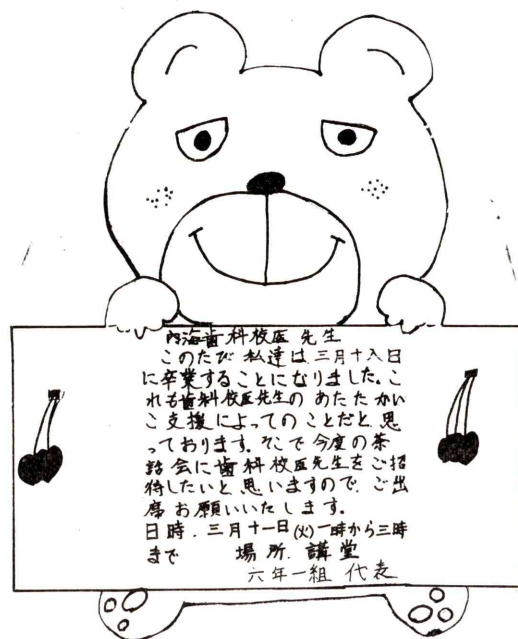 内海歯科校医先生
このたび私達は三月十八日
に卒業することになりました。こ
れも歯科校医先生のあたたかい
ご支援によってのことだと思
っております。そこで今度の茶
話会に歯科校医先生をご招
待したいと思いますので、ご出
席お願いいたします。
日時.三月十一日(火)一時から三時
まで 場所.講堂
六年一組 代表